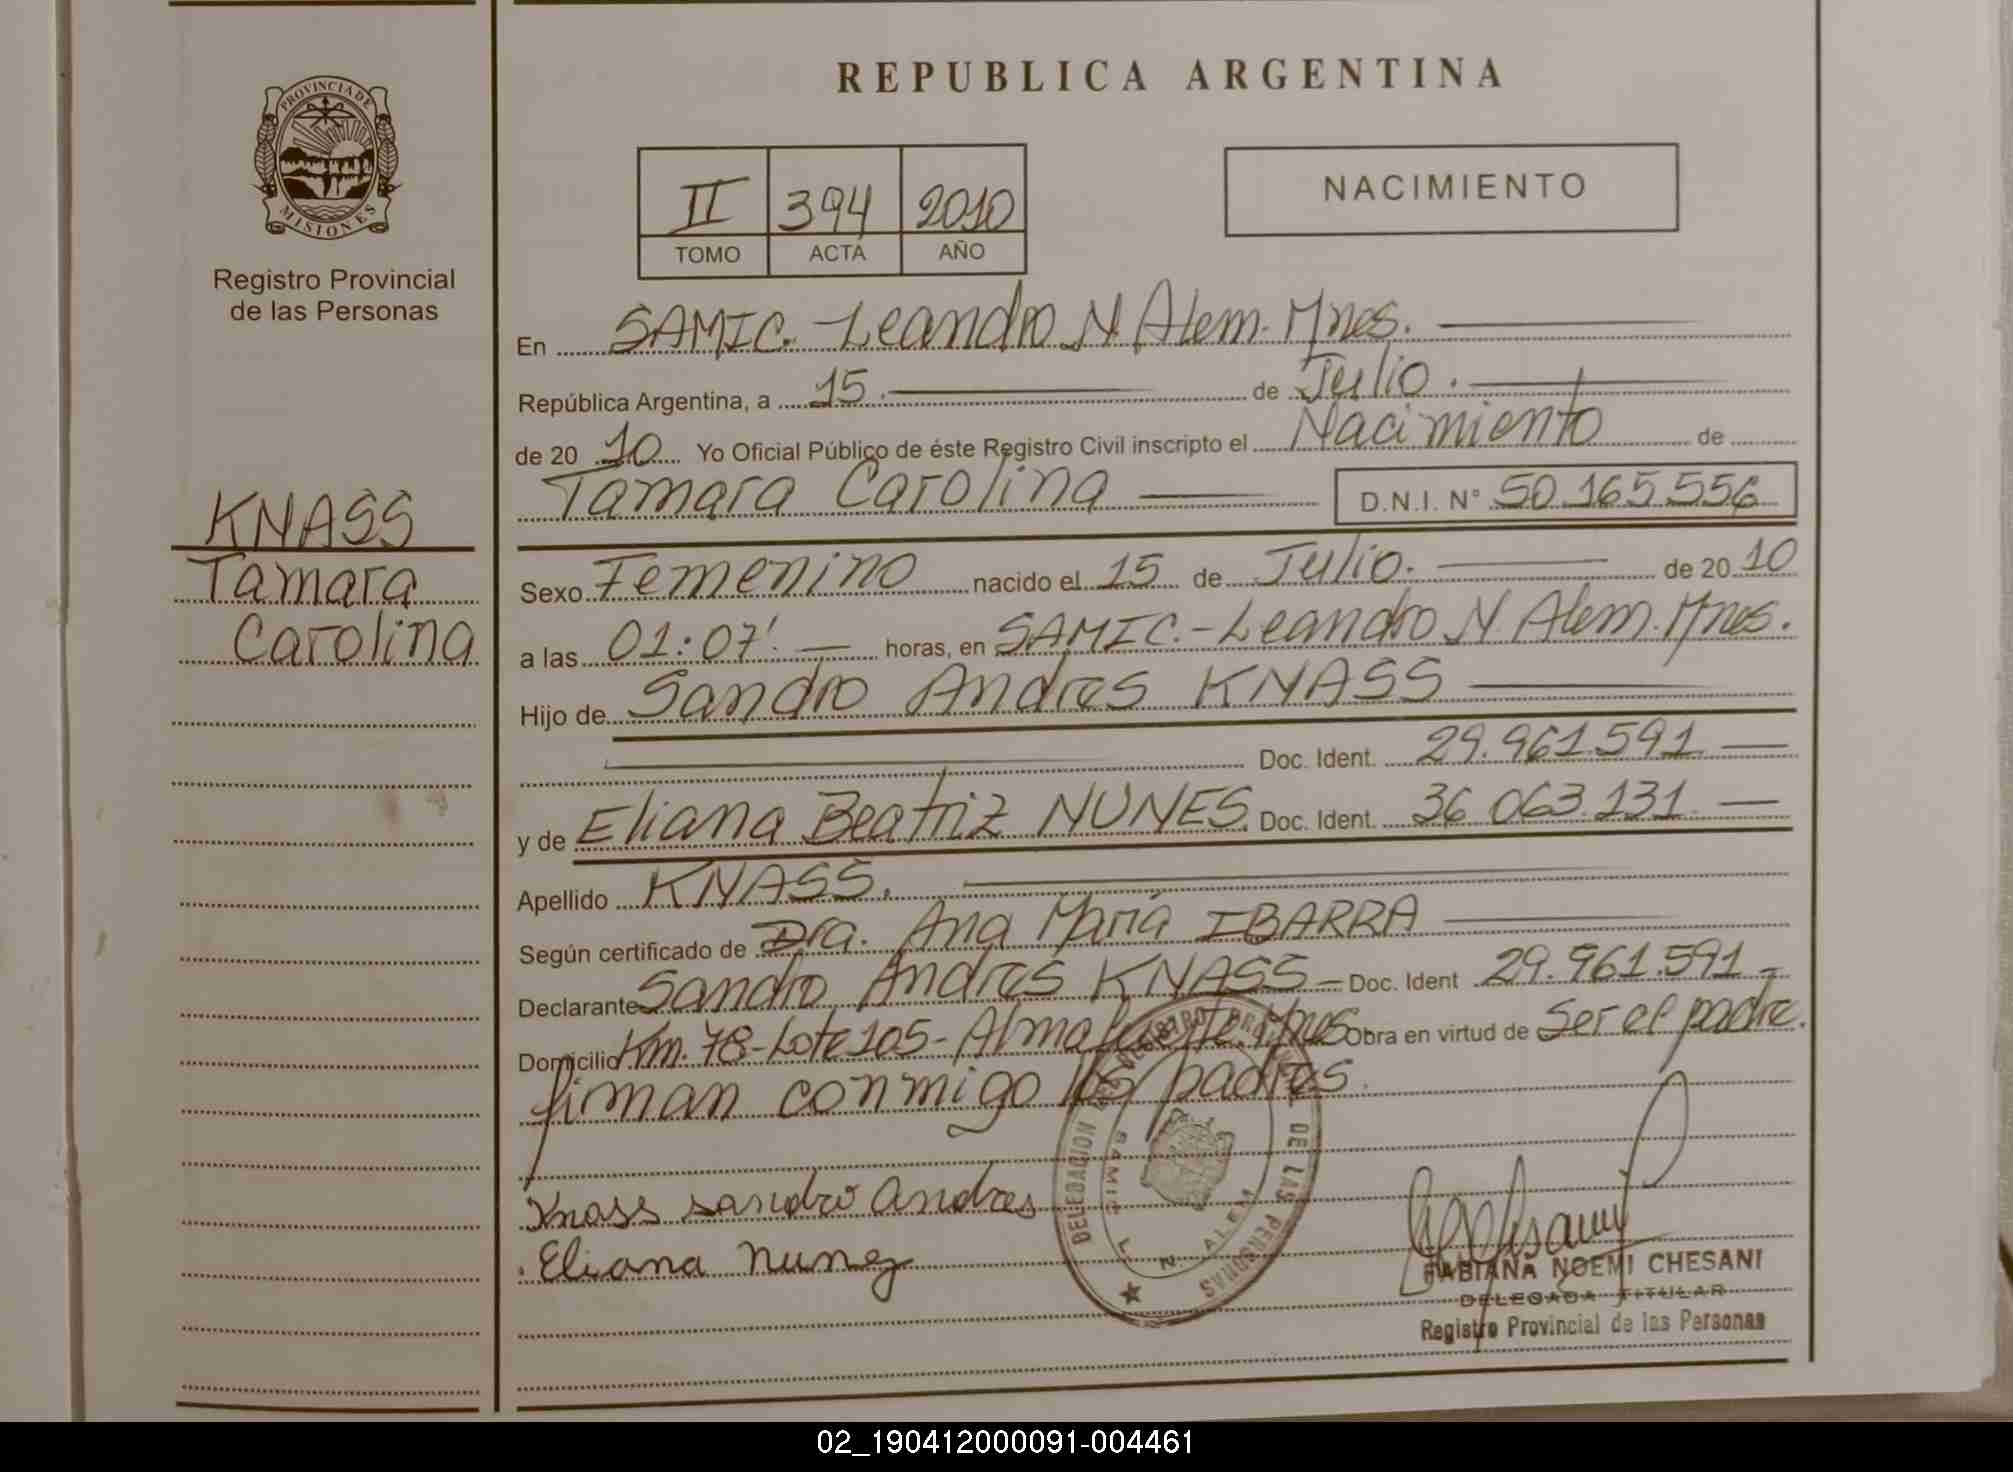 REPUBLICA ARGENTINA
PROVINCIA DE
MISIONES
Registro Provincial
de las Personas
II 394 2010
TOMO ACTA AÑO
NACIMIENTO
En SAMIC.-Leandro N. Alem. Mnes.
República Argentina, a 15. de Julio.
de 20 10 Yo Oficial Público de éste Registro Civil inscripto el Nacimiento de
Tamara Carolina D.N.I. N° 50.165.556
KNASS
Tamara
Carolina
Sexo Femenino nacido el 15 de Julio. de 20 10
a las 01:07'. horas, en SAMIC.-Leandro N. Alem. Mnes.
Hijo de Sandro Andres KNASS
Doc. Ident. 29.961.591
y de Eliana Beatriz NUNES. Doc. Ident. 36.063.131
Apellido KNASS.
Según certificado de Dra. Ana María IBARRA
Declarante Sandro Andres KNASS - Doc. Ident 29.961.591 -
Domicilio Km. 78-Lote 105-Almafuerte. Mnes Obra en virtud de Ser el padre.
firman conmigo los padres.
Knass sandro Andres
Eliana Nunez
DELEGACION REGISTRO PROVINCIAL DE LAS PERSONAS
SAMIC L. N. ALEM
FABIANA NOEMI CHESANI
DELEGADA TITULAR
Registro Provincial de las Personas
02_190412000091-004461